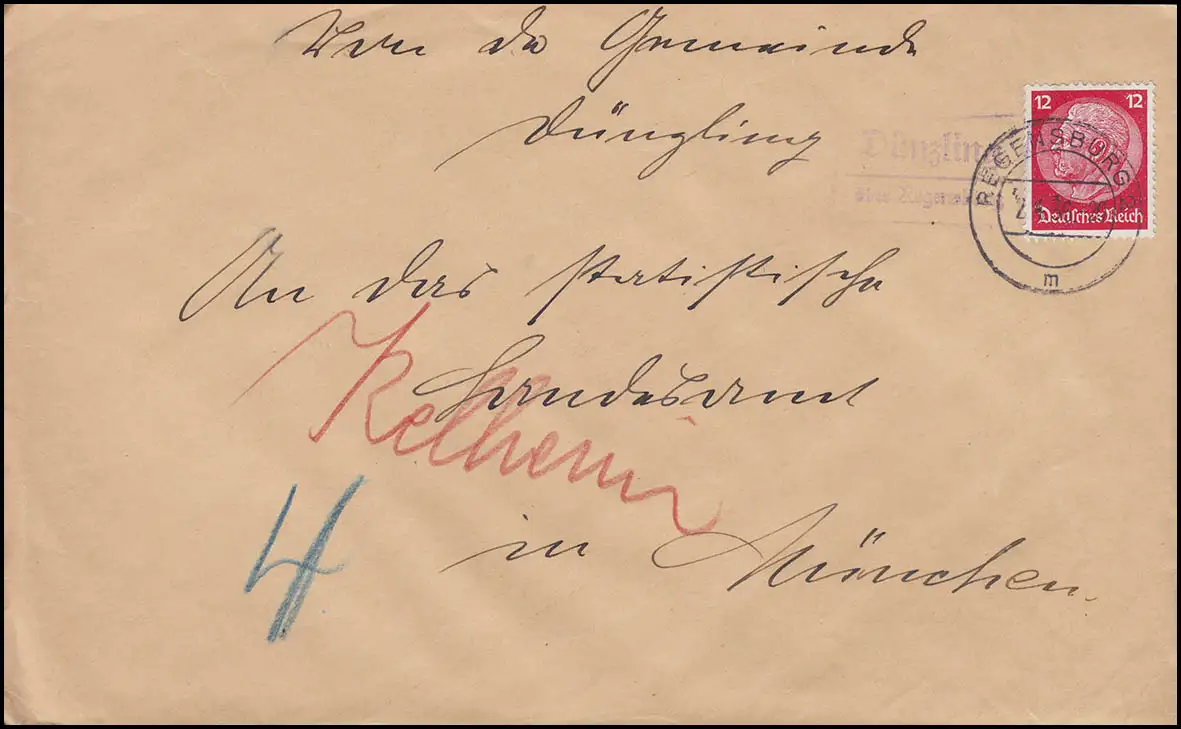 Von der Gemeinde
Dünzling
12 12
Deutsches Reich
Dünzling
über Regensburg
REGENSBURG
m
An das statistische
Landesamt
Kelheim
in München.
4